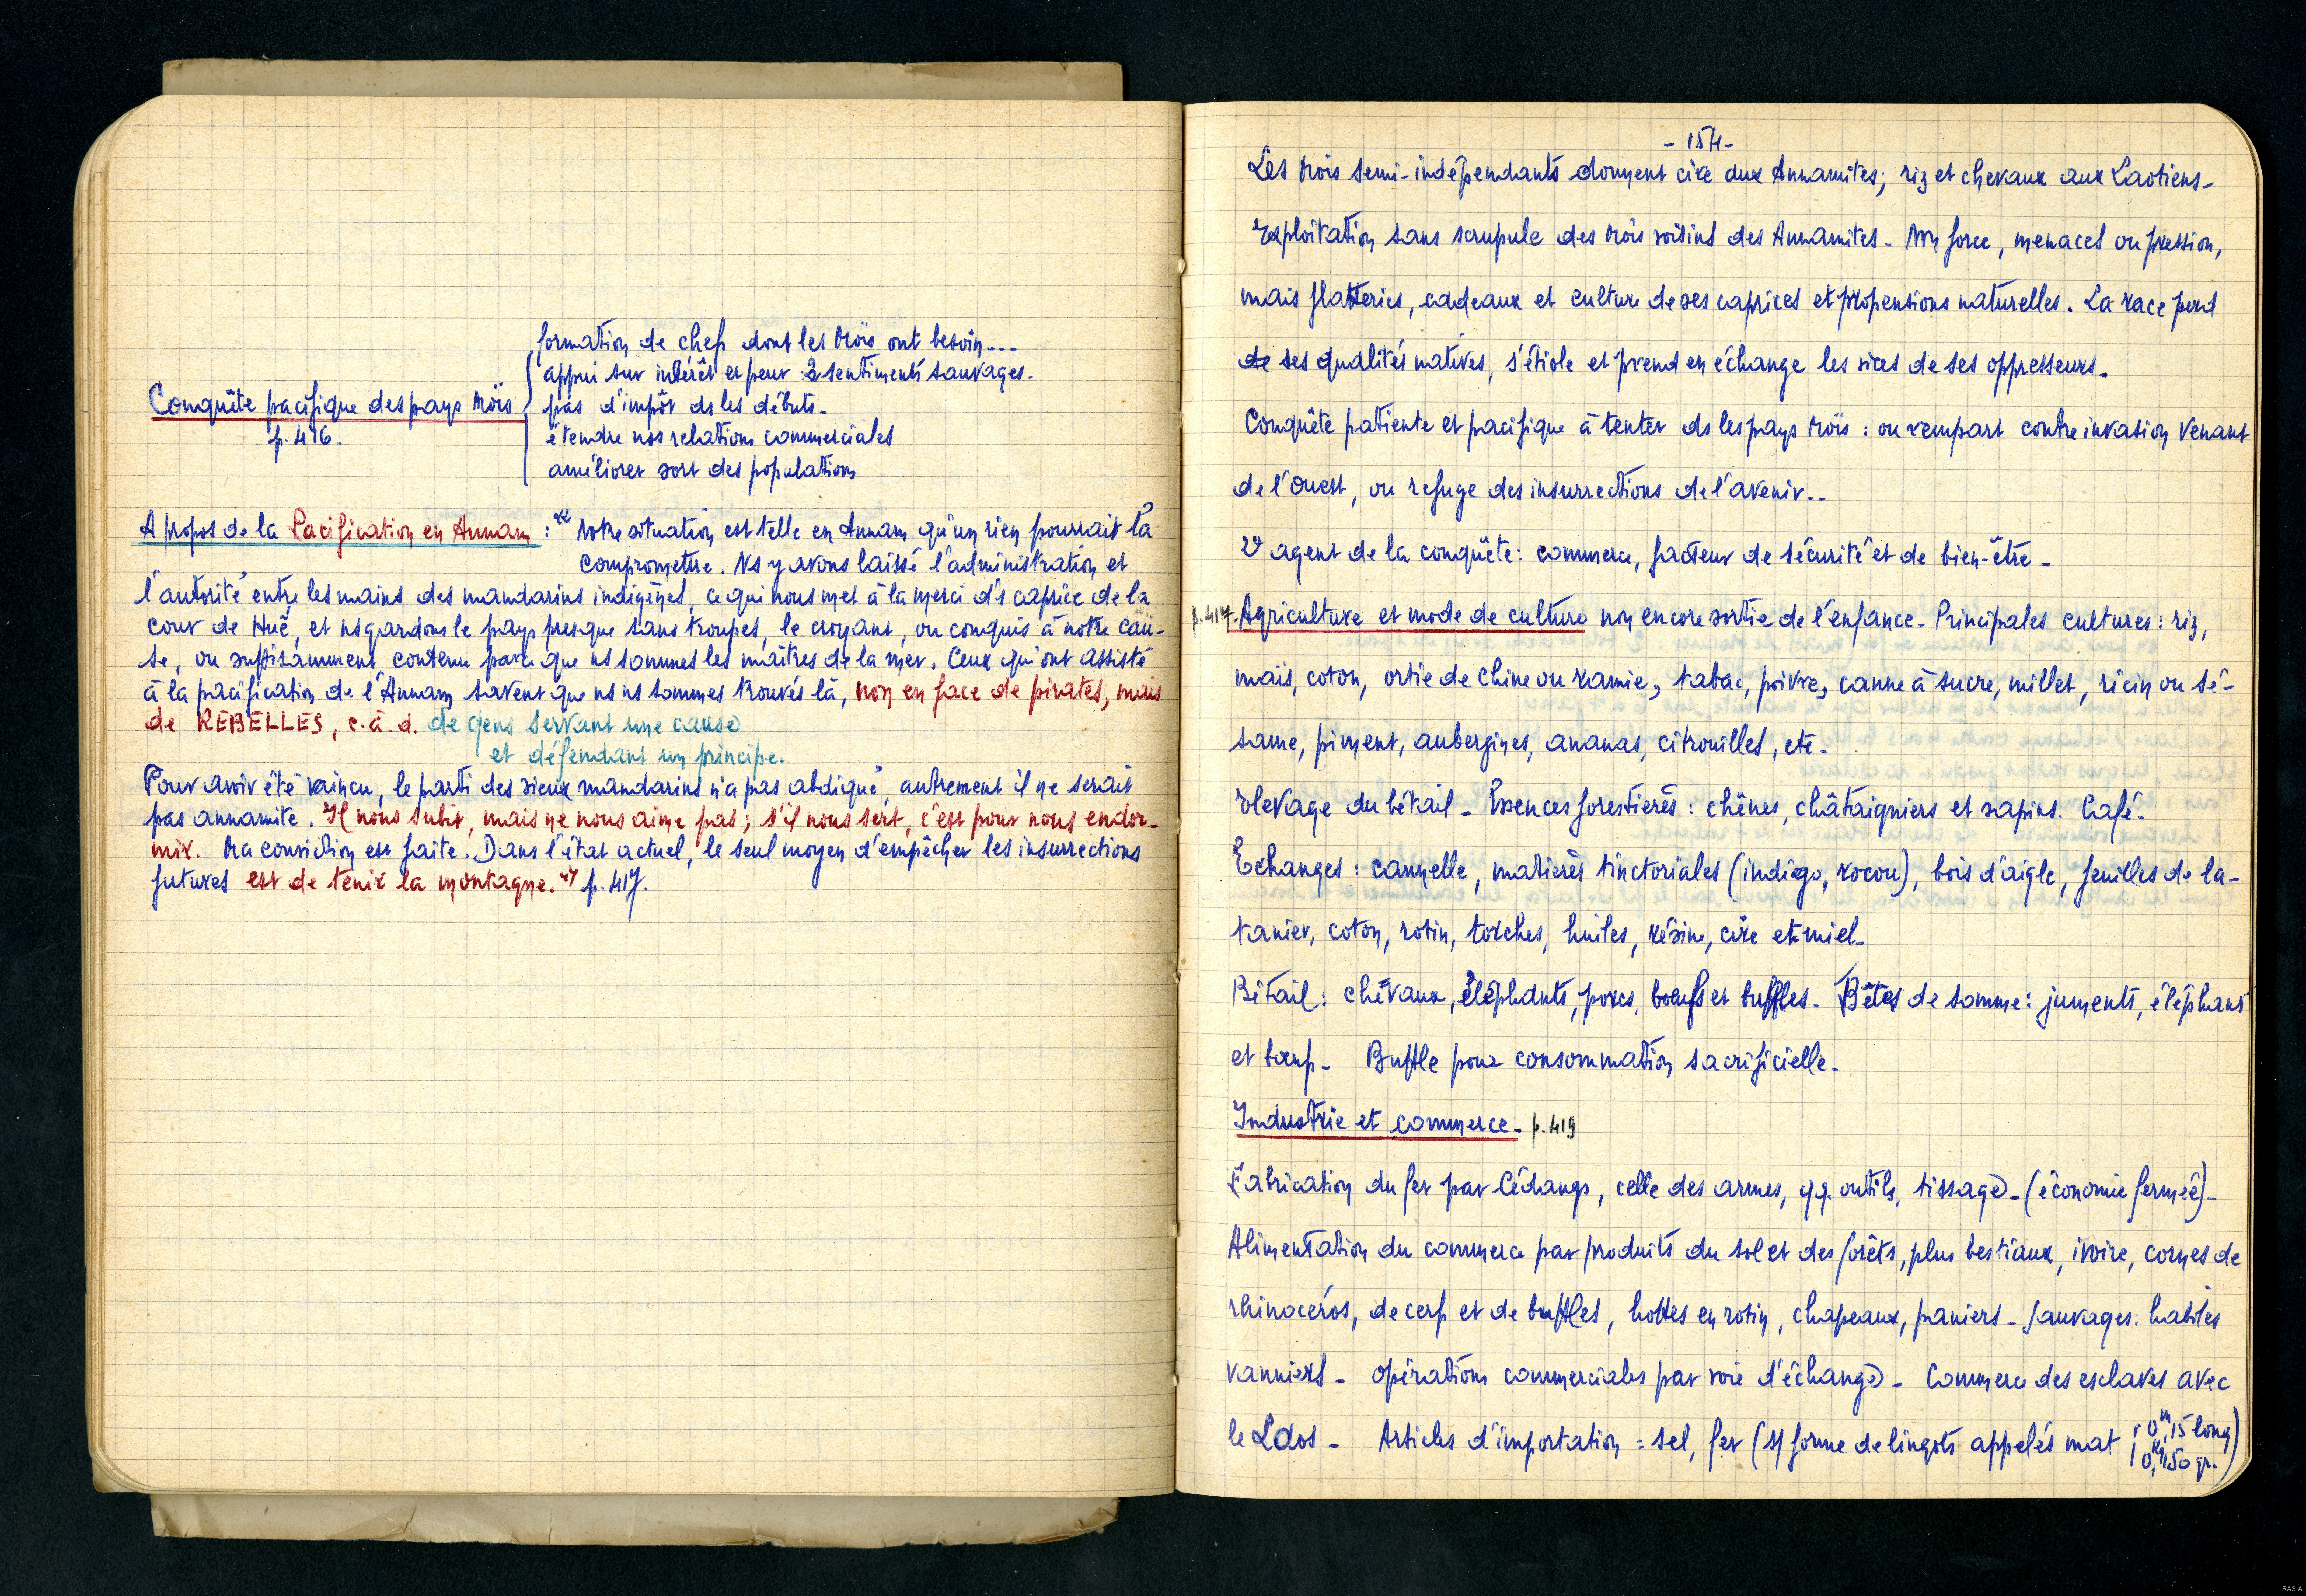 formation de chefs dont les Moïs ont besoin...
appui sur intérêt et peur : 2 sentiments sauvages.
Conquête pacifique des pays Moïs
pas d'impôt ds les débuts.
p. 416.
étendre nos relations commerciales
améliorer sort des populations
A propos de la Pacification en Annam : "Notre situation est telle en Annam qu'un rien pourrait la
compromettre. Ns y avons laissé l'administration et
l'autorité entre les mains des mandarins indigènes, ce qui nous met à la merci d's caprice de la
cour de Huê, et ns gardons le pays presque sans troupes, le croyant, ou conquis à notre cau-
se, ou suffisamment contenu parce que ns sommes les maîtres de la mer. Ceux qui ont assisté
à la pacification de l'Annam savent que ns ns sommes trouvés là, non en face de pirates, mais
de REBELLES, c.à.d. de gens servant une cause
et défendant un principe.
Pour avoir été vaincu, le parti des vieux mandarins n'a pas abdiqué, autrement il ne serait
pas annamite. Il nous subit, mais ne nous aime pas ; s'il nous sert, c'est pour nous endor-
mir. Ma conviction est faite. Dans l'état actuel, le seul moyen d'empêcher les insurrections
futures est de tenir la montagne." p. 417.
- 154 -
Les Moïs semi-indépendants donnent cire aux Annamites; riz et chevaux aux Laotiens-
Exploitation sans scrupule des Moïs voisins des Annamites - Non force, menaces ou pression,
mais flatteries, cadeaux et culture de ses caprices et propensions naturelles. La race perd
de ses qualités natives, s'étiole et prend en échange les vices de ses oppresseurs.
Conquête patiente et pacifique à tenter ds les pays Moïs : ou rempart contre invasion venant
de l'Ouest, ou refuge des insurrections de l'avenir..
2e agent de la conquête : commerce, facteur de sécurité et de bien-être -
p. 417. Agriculture et mode de culture non encore sortie de l'enfance - Principales cultures : riz,
maïs, coton, ortie de Chine ou ramie, tabac, poivre, canne à sucre, millet, ricin ou sé-
same, piment, aubergines, ananas, citrouilles, etc.
Elevage du bétail - Essences forestières : chênes, châtaigniers et sapins. Café.
Echanges : cannelle, matières tinctoriales (indigo, rocou), bois d'aigle, feuilles de la-
tanier, coton, rotin, torches, huiles, résine, cire et miel.
Bétail : chevaux, éléphants, porcs, boeufs et buffles. Bêtes de somme : juments, éléphants
et boeufs - Buffle pour consommation sacrificielle.
Industrie et commerce - p. 419
Fabrication du fer par Cédangs, celle des armes, qq. outils, tissage - (économie fermée) -
Alimentation du commerce par produits du sol et des forêts, plus bestiaux, ivoire, cornes de
rhinocéros, de cerf et de buffles, hottes en rotin, chapeaux, paniers - Sauvages : habiles
vanniers - opérations commerciales par voie d'échange - Commerce des esclaves avec
le Laos - Articles d'importation = sel, fer (s/ forme de lingots appelés mat 0m,15 long
0,kg150 gr.)
IRASIA